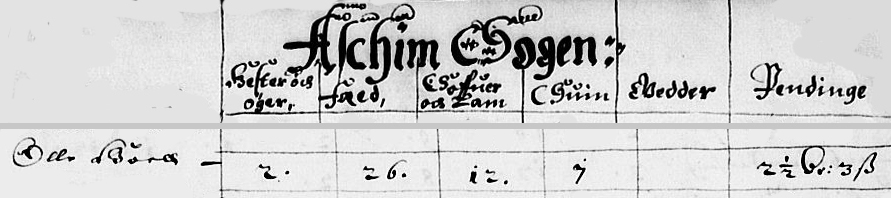 Aschim Sogen:
Hester och Øger, Fæed, Souffuer och Lam Suin Wedder Pendinge
Olle 2. 26. 12. 7 2½ ɞr: 3 ß